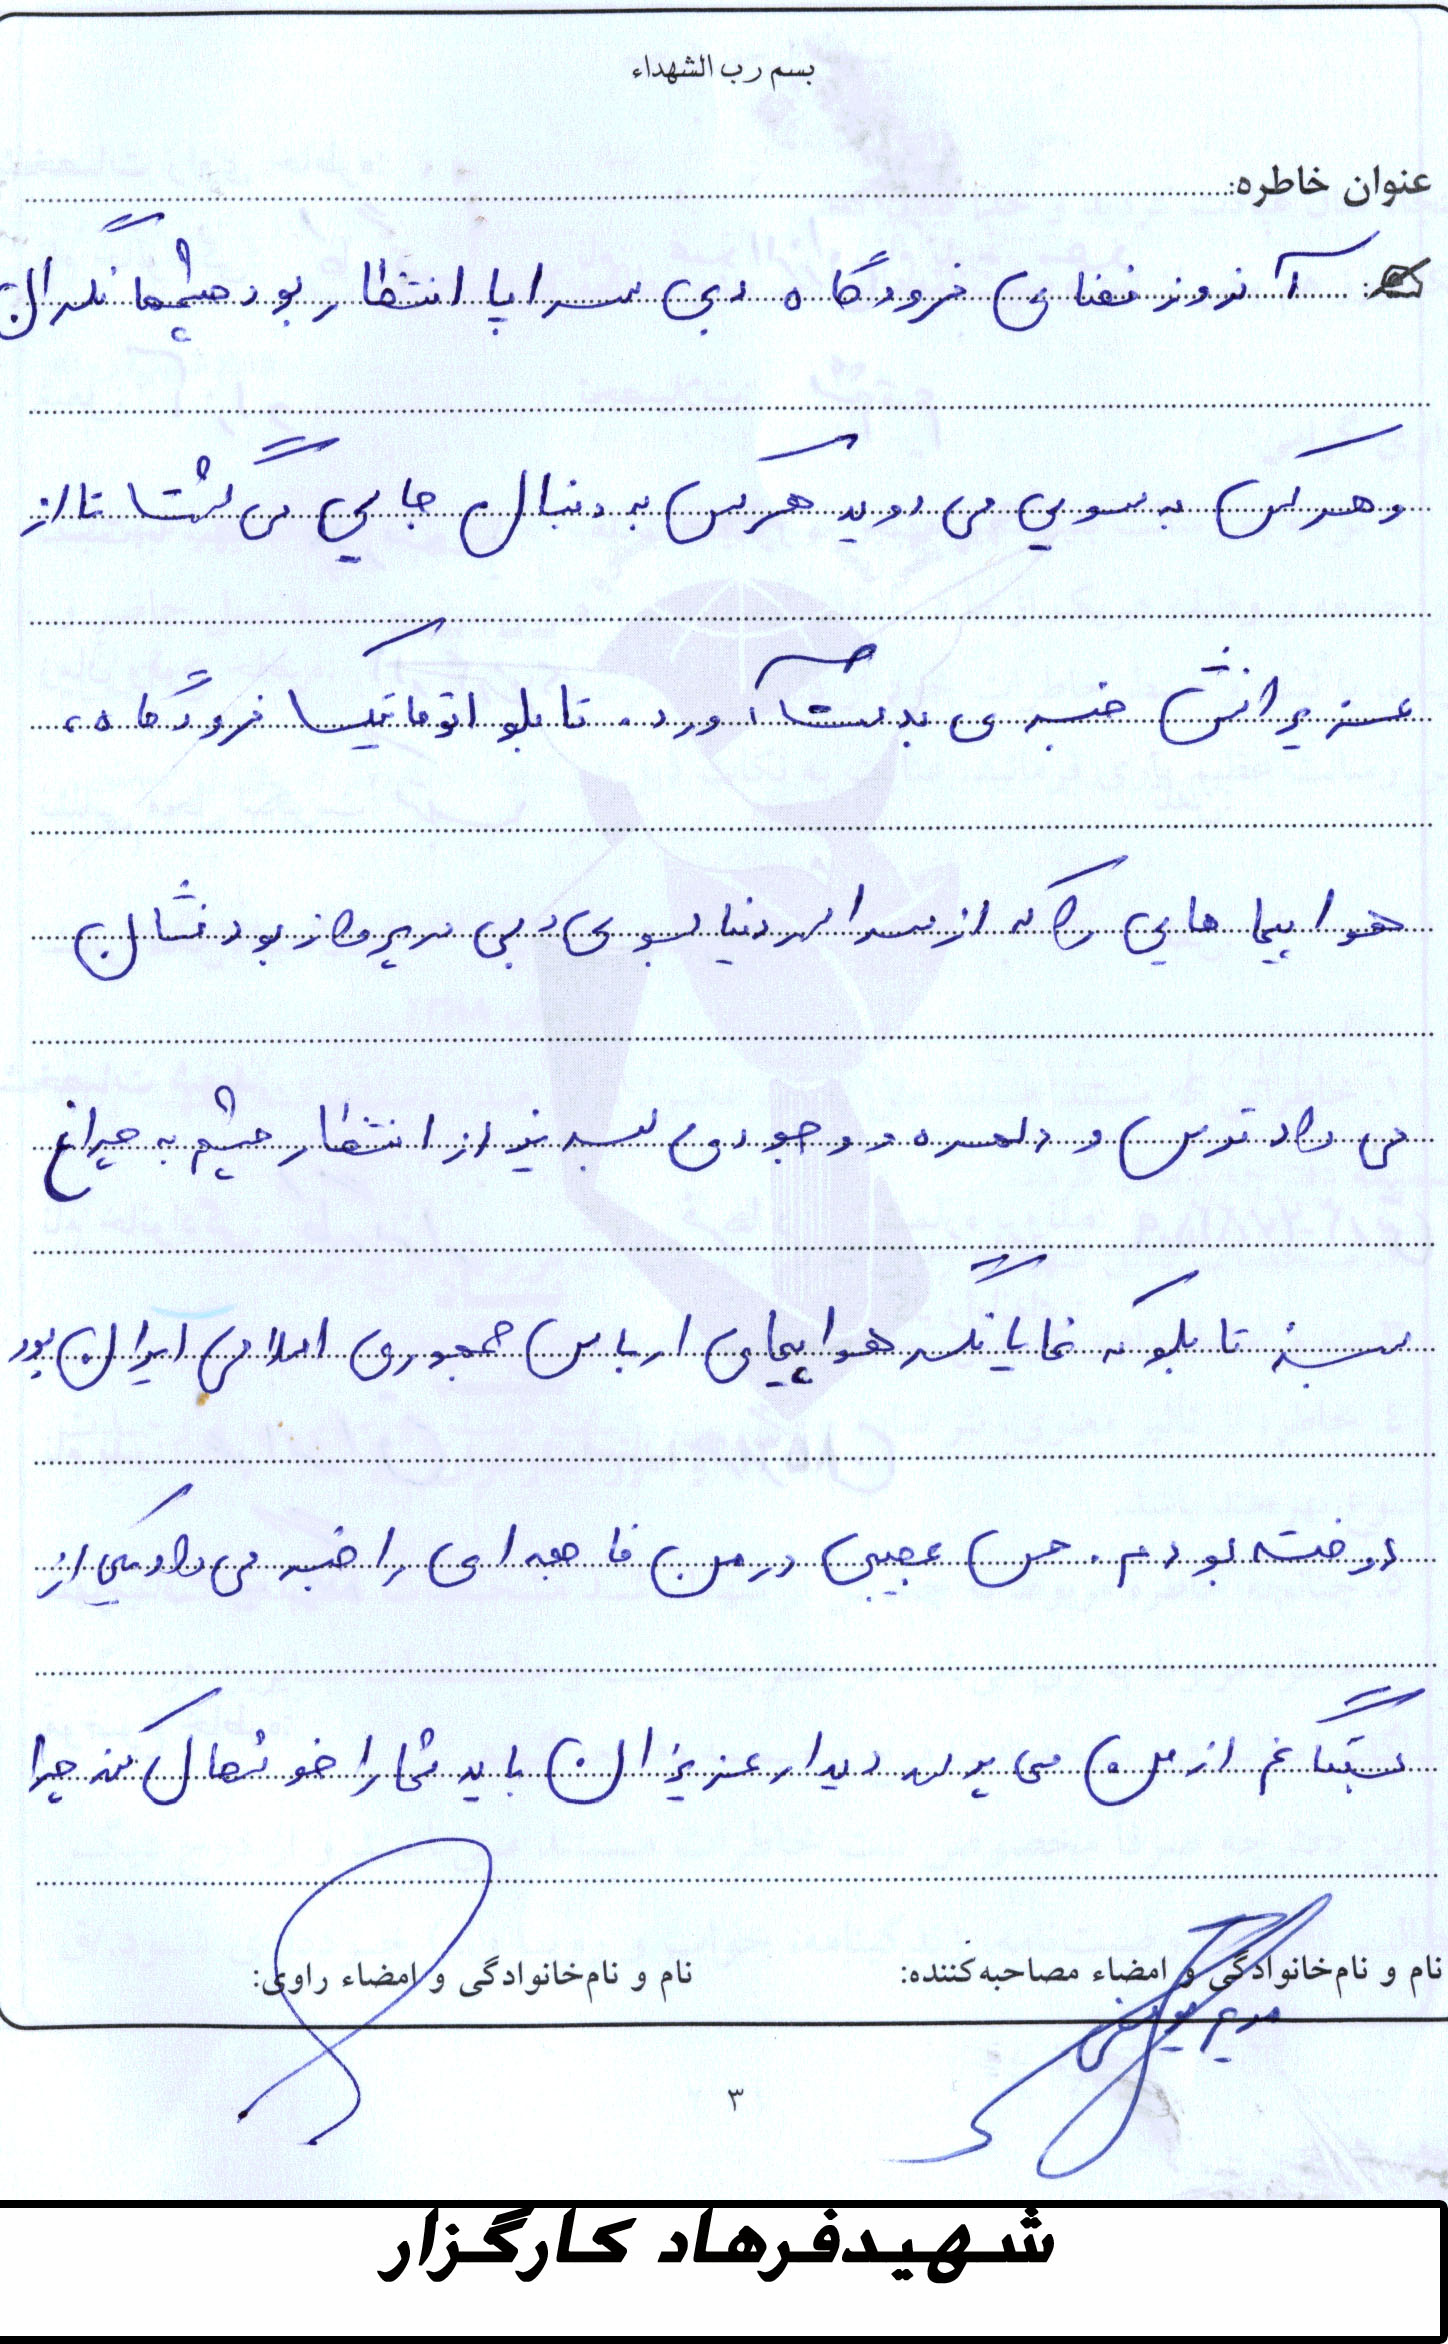 بسم رب الشهداء
عنوان خاطره:
آنروز فضای فرودگاه دبی سراپا انتظار بود چشمها نگران
و هرکس به سویی می دوید هرکس به دنبال جایی می گشت تا از
عزیزانش خبری بدست آورد. تابلو اتوماتیک فرودگاه،
هواپیما هایی را که از سراسر دنیا بسوی دبی در پرواز بود نشان
می داد ترس و دلهره و وجودی لبریز از انتظار چشم به چراغ
سبز تابلو که نمایانگر هواپیمای ارباس جمهوری اسلامی ایران بود
دوخته بودم. حس عجیبی در من فاجعه ای را خبر می داد یکی از
از من می پرسد دیدار عزیزان باید شما را خوشحال کند چرا
نام و نام‌خانوادگی و امضاء مصاحبه‌کننده:
نام و نام‌خانوادگی و امضاء راوی:
مریم
۳
شهیدفرهاد کارگزار